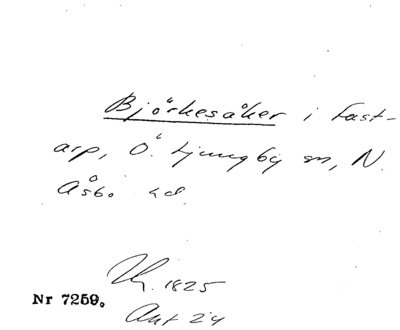 Björkesåker i Fast-
arp, Ö. Ljungby sn, N.
Åsbo hd.
1825
Nr 7259.
Akt 24